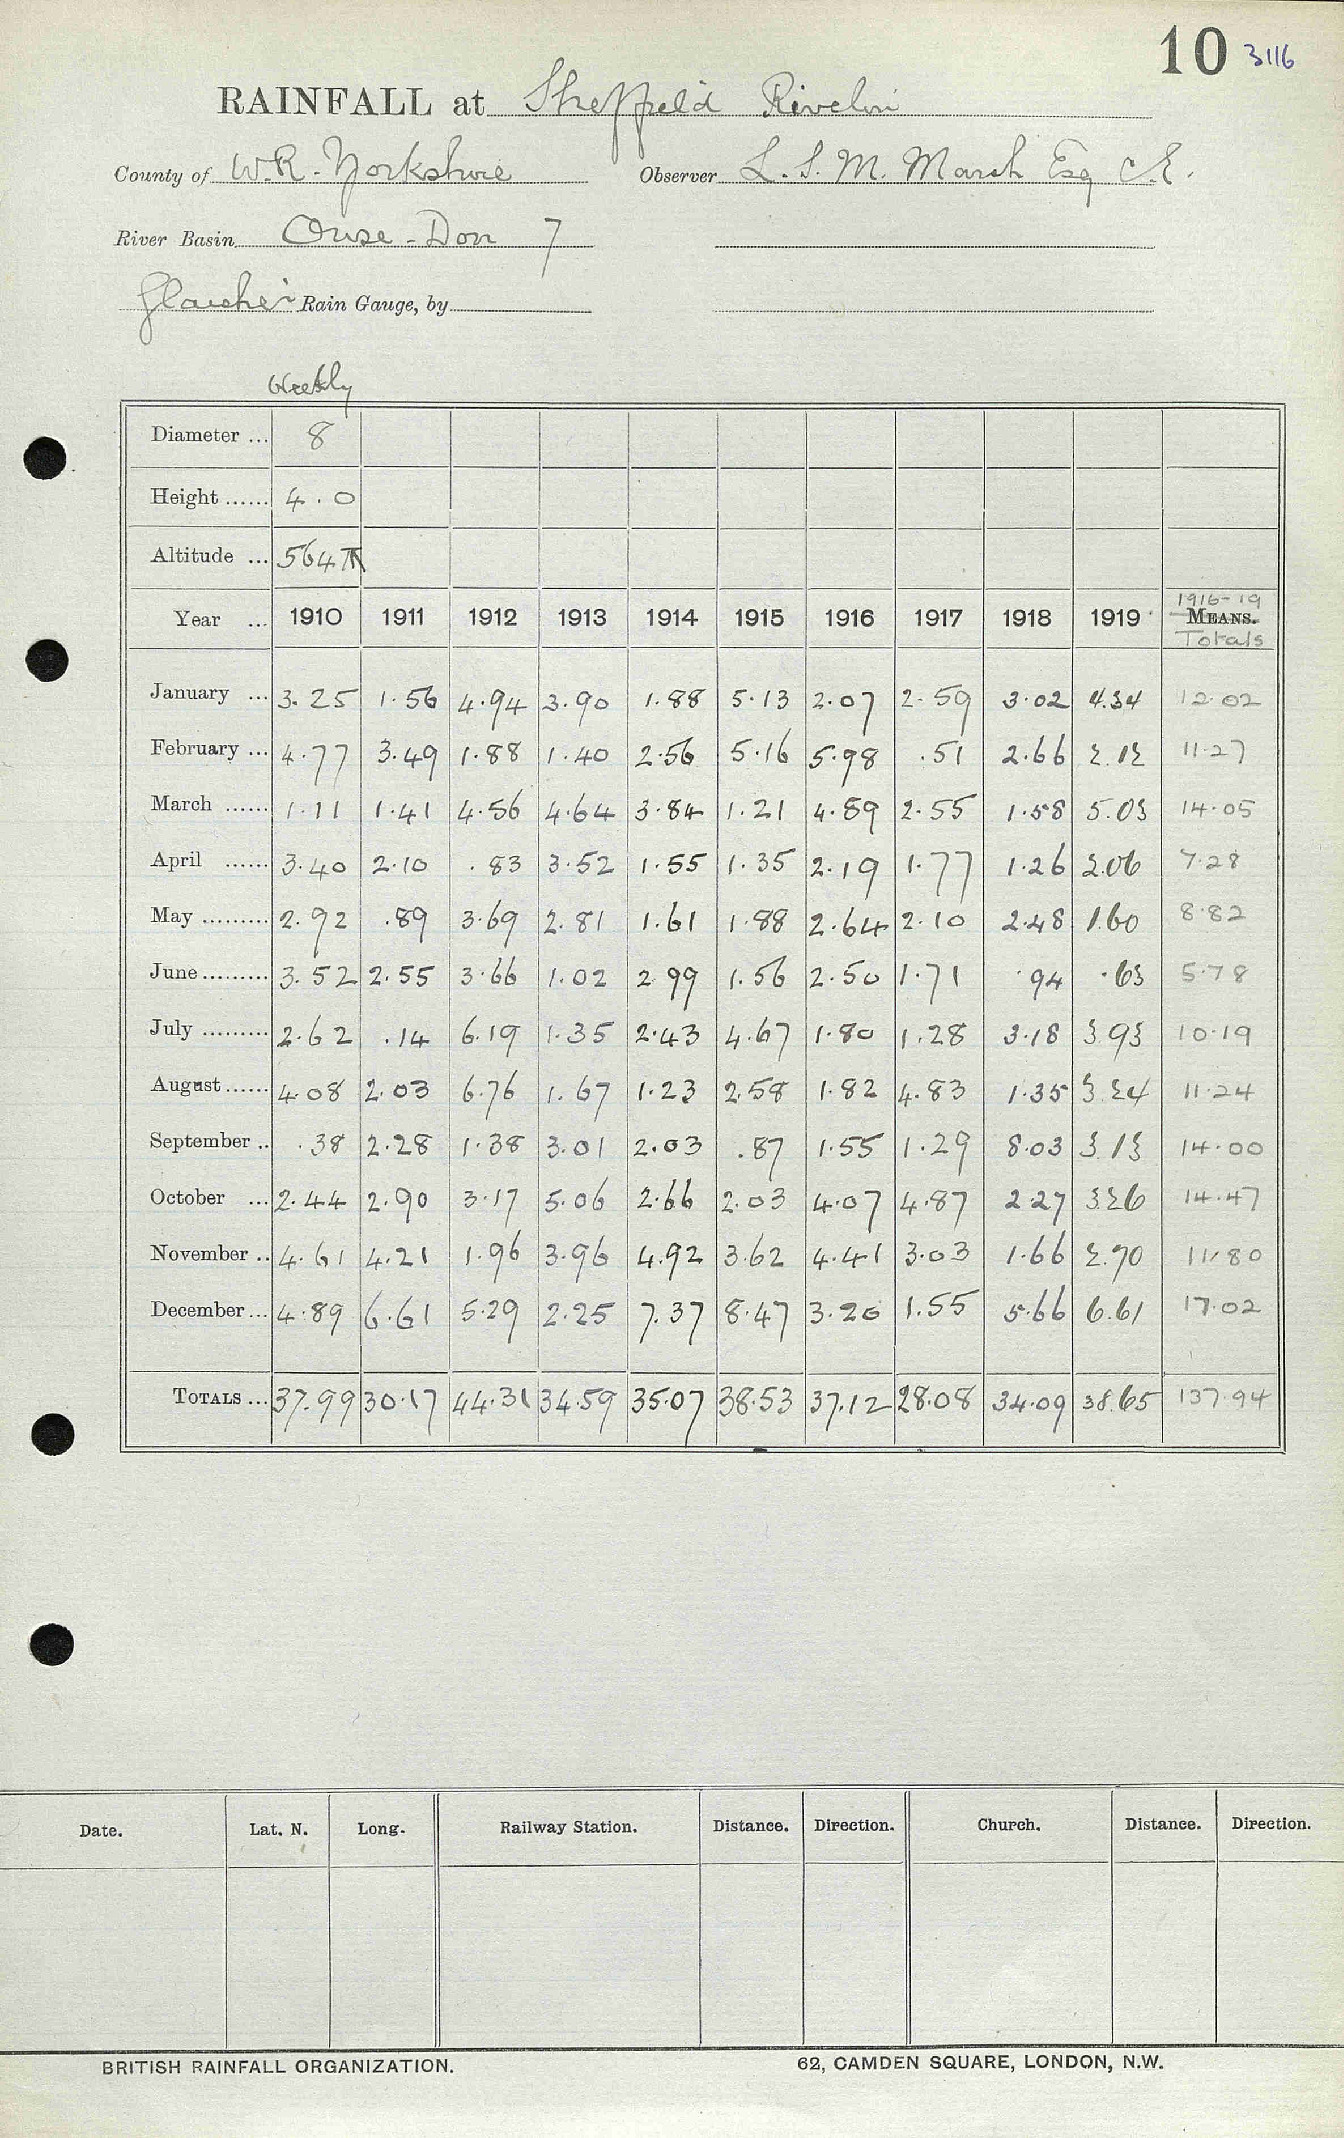 10 3116
RAINFALL at Sheffield Rivelin
County of W.R. Yorkshire Observer L.S.M. Marsh Esq C.E.
River Basin Ouse-Don 7
Glaisher Rain Gauge, by
Weekly
Diameter ... 8
Height ...... 4.0
Altitude ... 564
Year ... 1910 1911 1912 1913 1914 1915 1916 1917 1918 1919 1916-19 MEANS. Totals
January ... 3.25 1.56 4.94 3.90 1.88 5.13 2.07 2.59 3.02 4.34 12.02
February ... 4.77 3.49 1.88 1.40 2.56 5.16 5.98 .51 2.66 2.12 11.27
March ...... 1.11 1.41 4.56 4.64 3.84 1.21 4.89 2.55 1.58 5.03 14.05
April ...... 3.40 2.10 .83 3.52 1.55 1.35 2.19 1.77 1.26 2.06 7.28
May ......... 2.92 .89 3.69 2.81 1.61 1.88 2.64 2.10 2.48 1.60 8.82
June ......... 3.52 2.55 3.66 1.02 2.99 1.56 2.50 1.71 .94 .63 5.78
July ......... 2.62 .14 6.19 1.35 2.43 4.67 1.80 1.28 3.18 3.93 10.19
August ...... 4.08 2.03 6.76 1.67 1.23 2.58 1.82 4.83 1.35 3.24 11.24
September .. .38 2.28 1.38 3.01 2.03 .87 1.55 1.29 8.03 3.13 14.00
October ... 2.44 2.90 3.17 5.06 2.66 2.03 4.07 4.87 2.27 3.26 14.47
November .. 4.61 4.21 1.96 3.96 4.92 3.62 4.41 3.03 1.66 2.70 11.80
December ... 4.89 6.61 5.29 2.25 7.37 8.47 3.20 1.55 5.66 6.61 17.02
TOTALS ... 37.99 30.17 44.31 34.59 35.07 38.53 37.12 28.08 34.09 38.65 137.94
Date. Lat. N. Long. Railway Station. Distance. Direction. Church. Distance. Direction.
BRITISH RAINFALL ORGANIZATION. 62, CAMDEN SQUARE, LONDON, N.W.